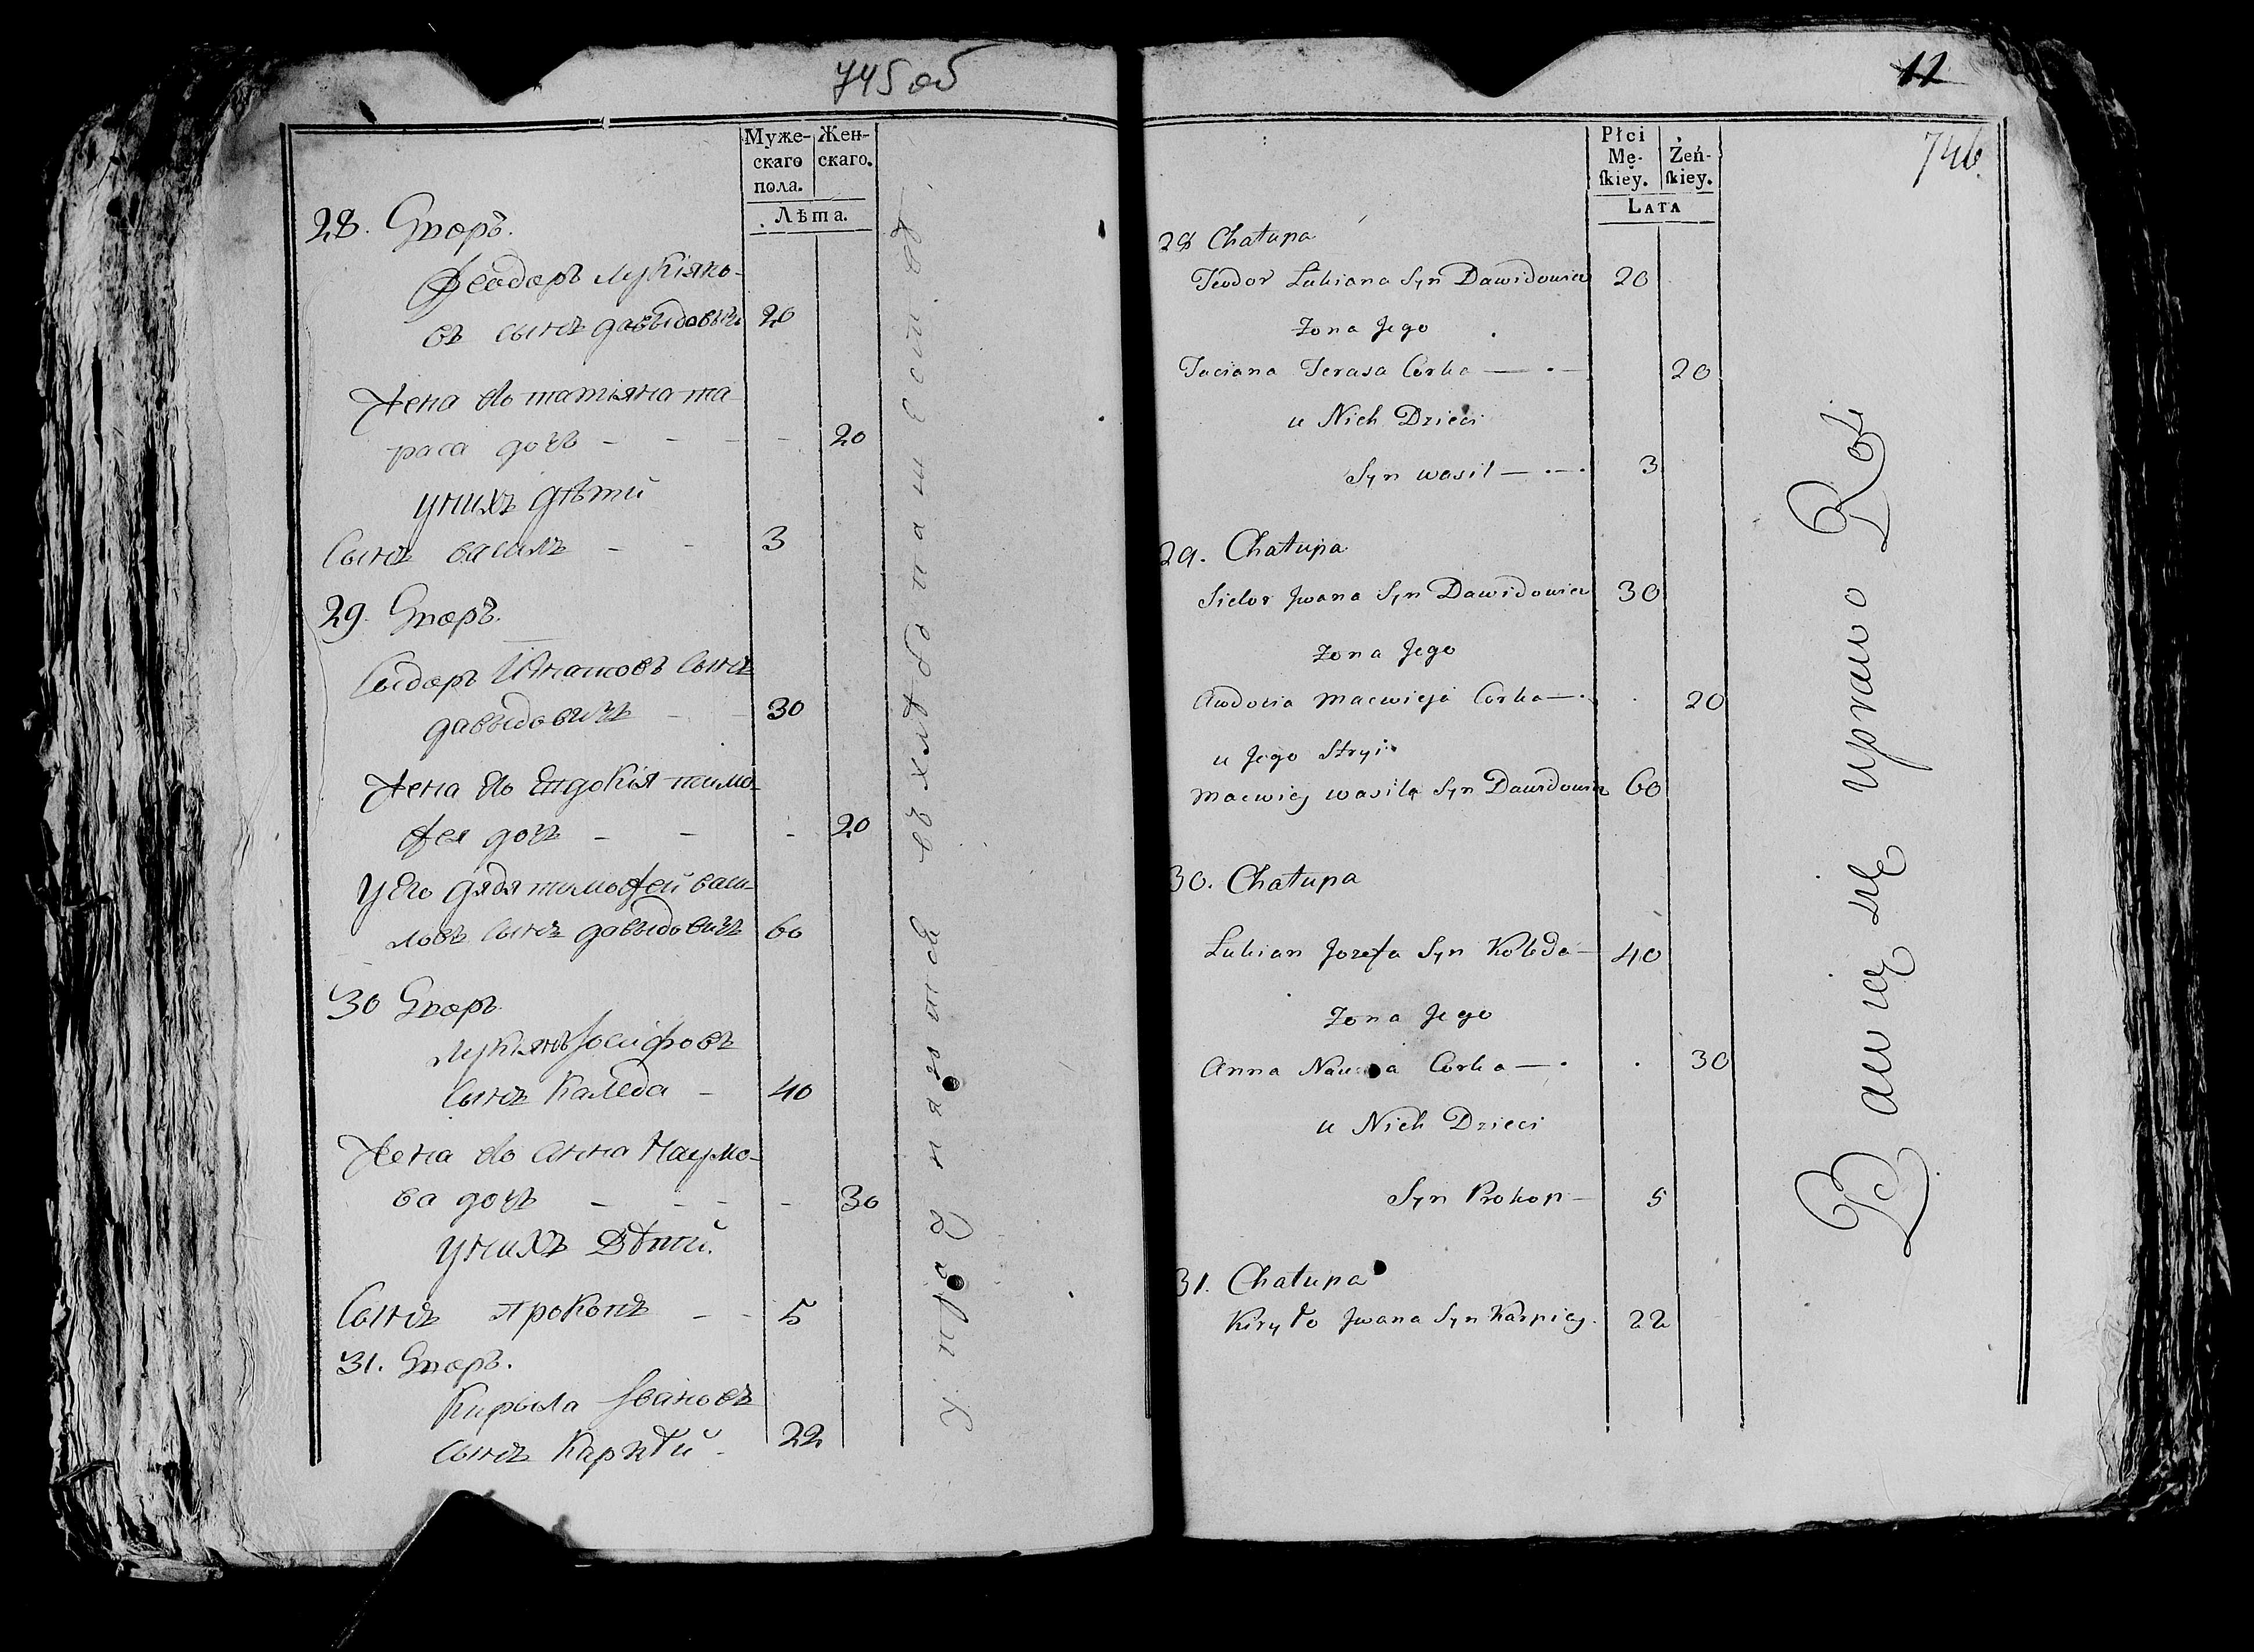 745 об
Муже- Жен-
скаго скаго.
пола.
Лѣта.
28. Дворъ.
Феодоръ Лукіяно-
въ сынъ давыдовичъ 20
Жена его татіяна та-
раса дочь - - - - 20
унихъ дѣти
Сынъ василь - - 3
29. Дворъ.
Сидоръ Ивановъ сынъ
давыдовичъ - - 30
Жена его Евдокія тимо-
фея дочь - - - 20
у Его дядя тимофей васи-
ловъ сынъ давыдовичъ 60
30 Дворъ
Лукіянъ Іосифовъ
сынъ Каледа - 40
Жена его анна Наумо-
ва дочь - - - - 30
унихъ Дѣти.
Сынъ прокопъ - - 5
31. Дворъ.
Кирыла Івановъ
сынъ Карпѣй - 22
въ хлѣбопашествѣ
12
746
Płci
Mę- Żeń-
skiey. skiey.
LATA
28 Chałupa
Teodor Lukiana Syn Dawidowicz 20
Zona Jego
Taciana Terasa Corka — · — 20
u Nich Dzieci
Syn wasil — · — · 3
29. Chałupa
Sidor Jwana Syn Dawidowicz 30
Zona Jego
Awdocia Macwieja Corka — · · 20
u Jego Stryi
Macwiej wasila Syn Dawidowicz 60
30. Chałupa
Lukian Jozefa Syn Koleda — 40
Zona Jego
Anna Corka — · · 30
u Nich Dzieci
Syn Prokop — 5
31. Chałupa
Kiryło Jwana Syn Karpiej. 22
Bawią się uprawo Roli